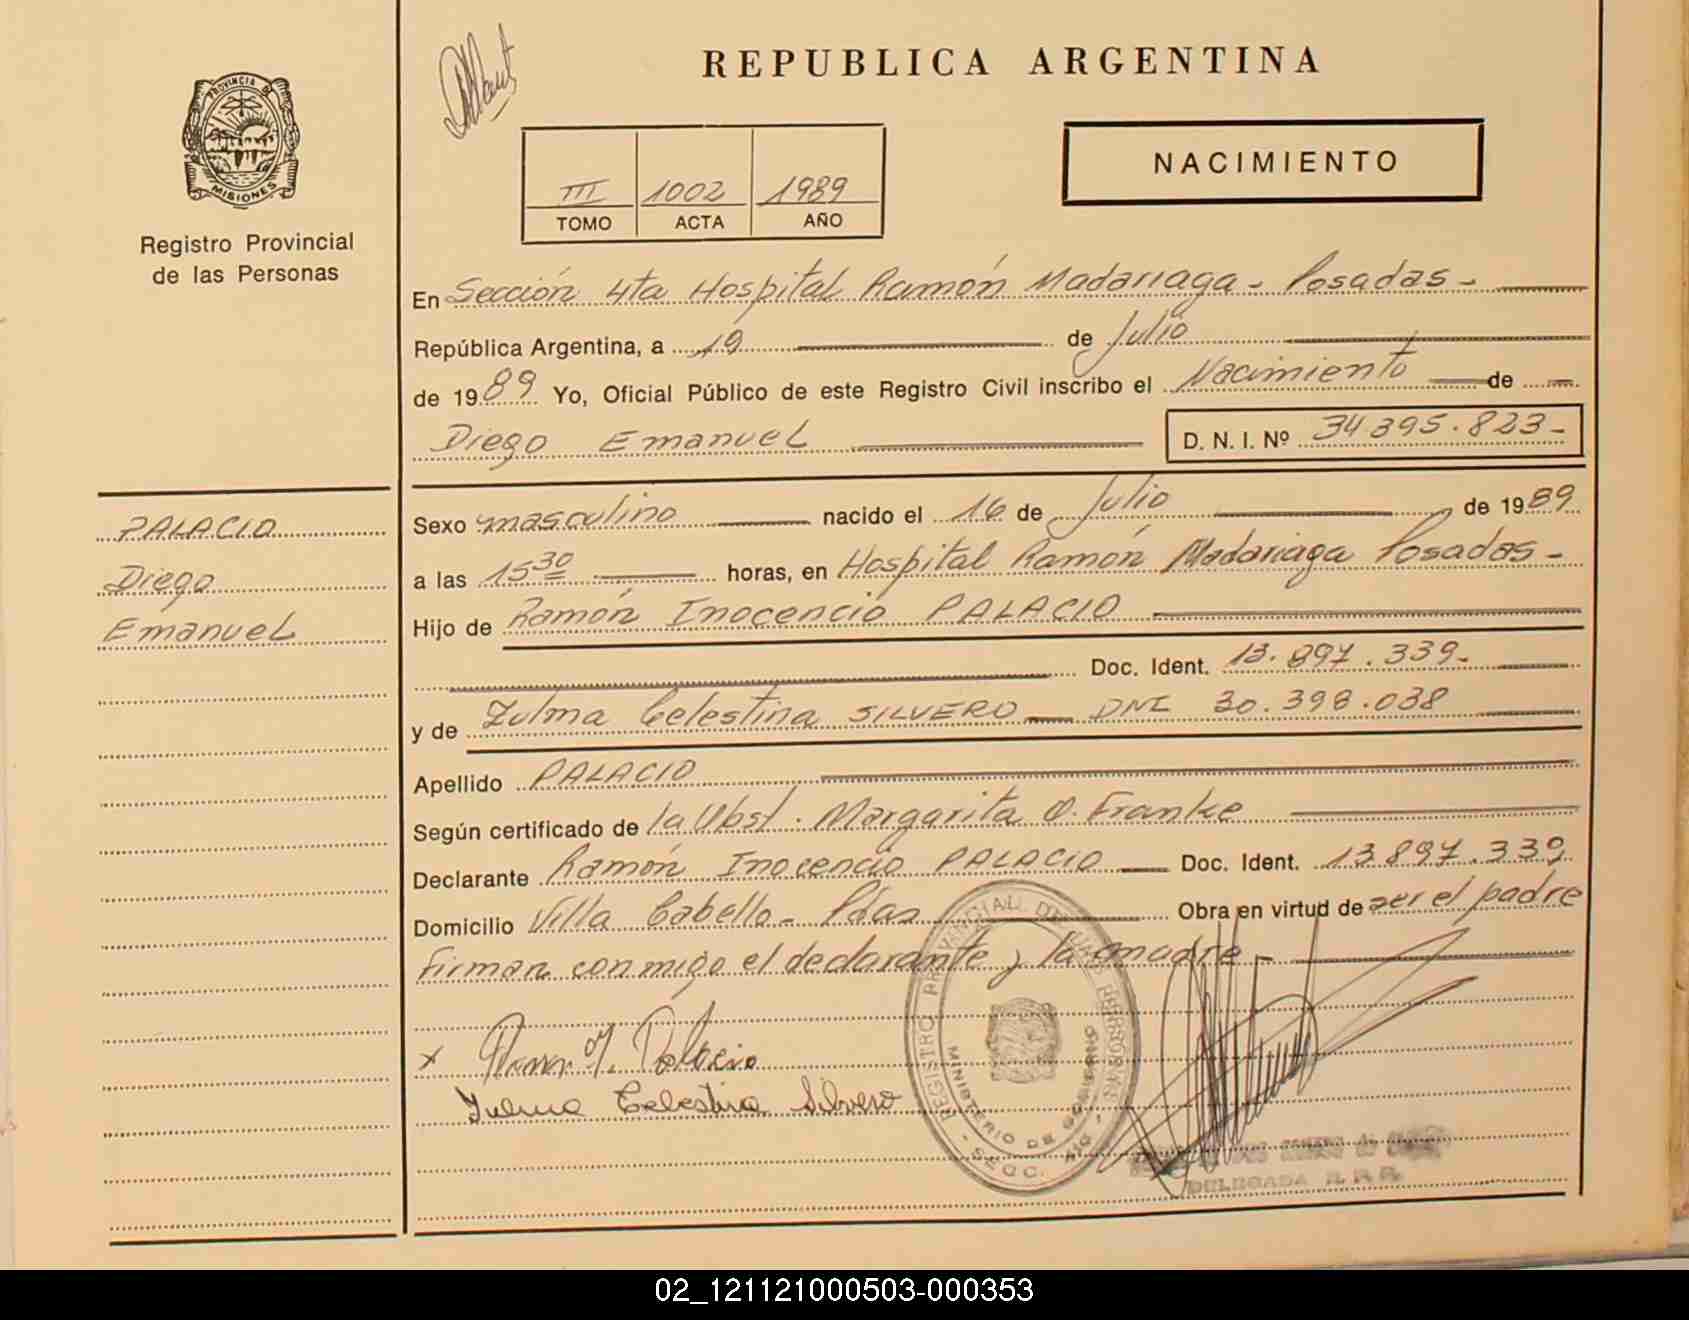 REPUBLICA ARGENTINA
PROVINCIA DE
MISIONES
Registro Provincial
de las Personas
III 1002 1989
TOMO ACTA AÑO
NACIMIENTO
En Sección 4ta Hospital Ramón Madariaga - Posadas -
República Argentina, a 19 de Julio
de 1989 Yo, Oficial Público de este Registro Civil inscribo el Nacimiento de
Diego Emanuel D. N. I. Nº 34395.823-
PALACIO
Diego
Emanuel
Sexo masculino nacido el 16 de Julio de 1989
a las 15 30 horas, en Hospital Ramón Madariaga Posadas -
Hijo de Ramón Inocencio PALACIO
Doc. Ident. 13.897.339-
y de Zulma Celestina SILVERO DNI 20.398.038
Apellido PALACIO
Según certificado de la Obst. Margarita O. Franke
Declarante Ramón Inocencio PALACIO Doc. Ident. 13897.339
Domicilio Villa Cabello - Pdas Obra en virtud de ser el padre
firman conmigo el declarante y la madre -
x Ramon I. Palacio
Zulma Celestina Silvero
REGISTRO PROVINCIAL DE LAS PERSONAS
MINISTERIO DE GOBIERNO
- SECC. 4ta -
DELEGADA R. P. P.
02_121121000503-000353